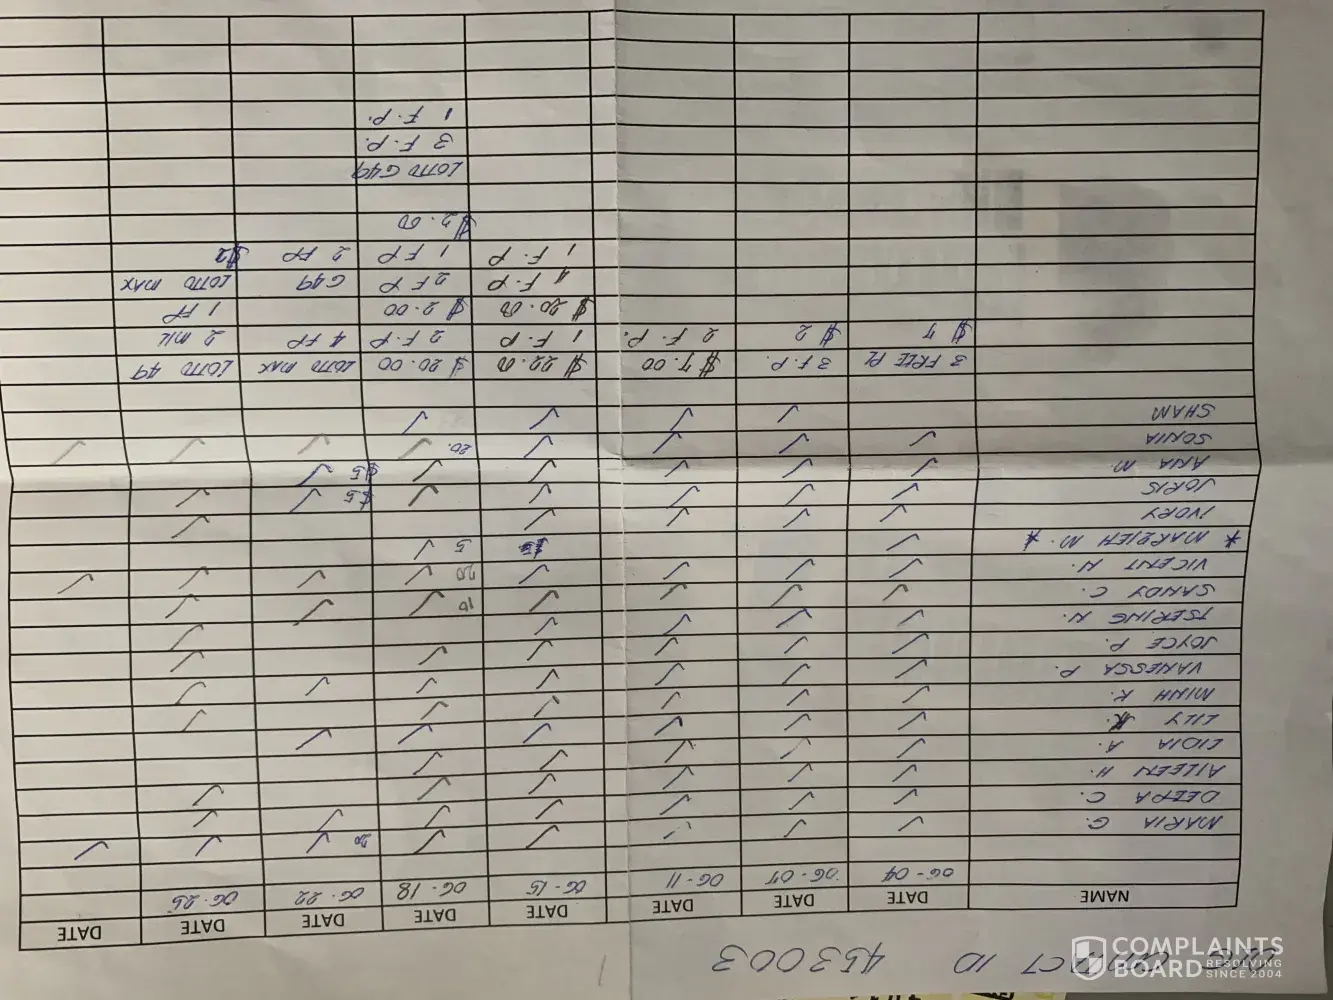 CONTACT ID 453003
NAME DATE DATE DATE DATE DATE DATE DATE DATE
06-04 06-07 06-11 06-15 06-18 06-22 06-25
MARIA G. 20
DEEPA C.
AILEEN H.
LIDIA A.
LILY
MINH K.
VANESSA P.
JOYCE P.
TSERING N.
SANDY C. 10
VICENT N. 20
* MARZIEH M. * 5
IVORY
JORIS $5
ANA M. $5
SONIA 20.
SHAM
3 FREE PL 3 F.P. $7.00 $22.00 $20.00 LOTTO MAX LOTTO 49
$7 $2 2 F.P. 1 F.P 2 F.P 4 FP
$20.00 $2.00 1 FP
4 F.P 2 F.P G49 LOTTO MAX
1 F.P 1 FP 2 FP $2
$2.00
LOTTO G49
3 F.P.
1 F.P.
COMPLAINTS
BOARD RESOLVING
SINCE 2004